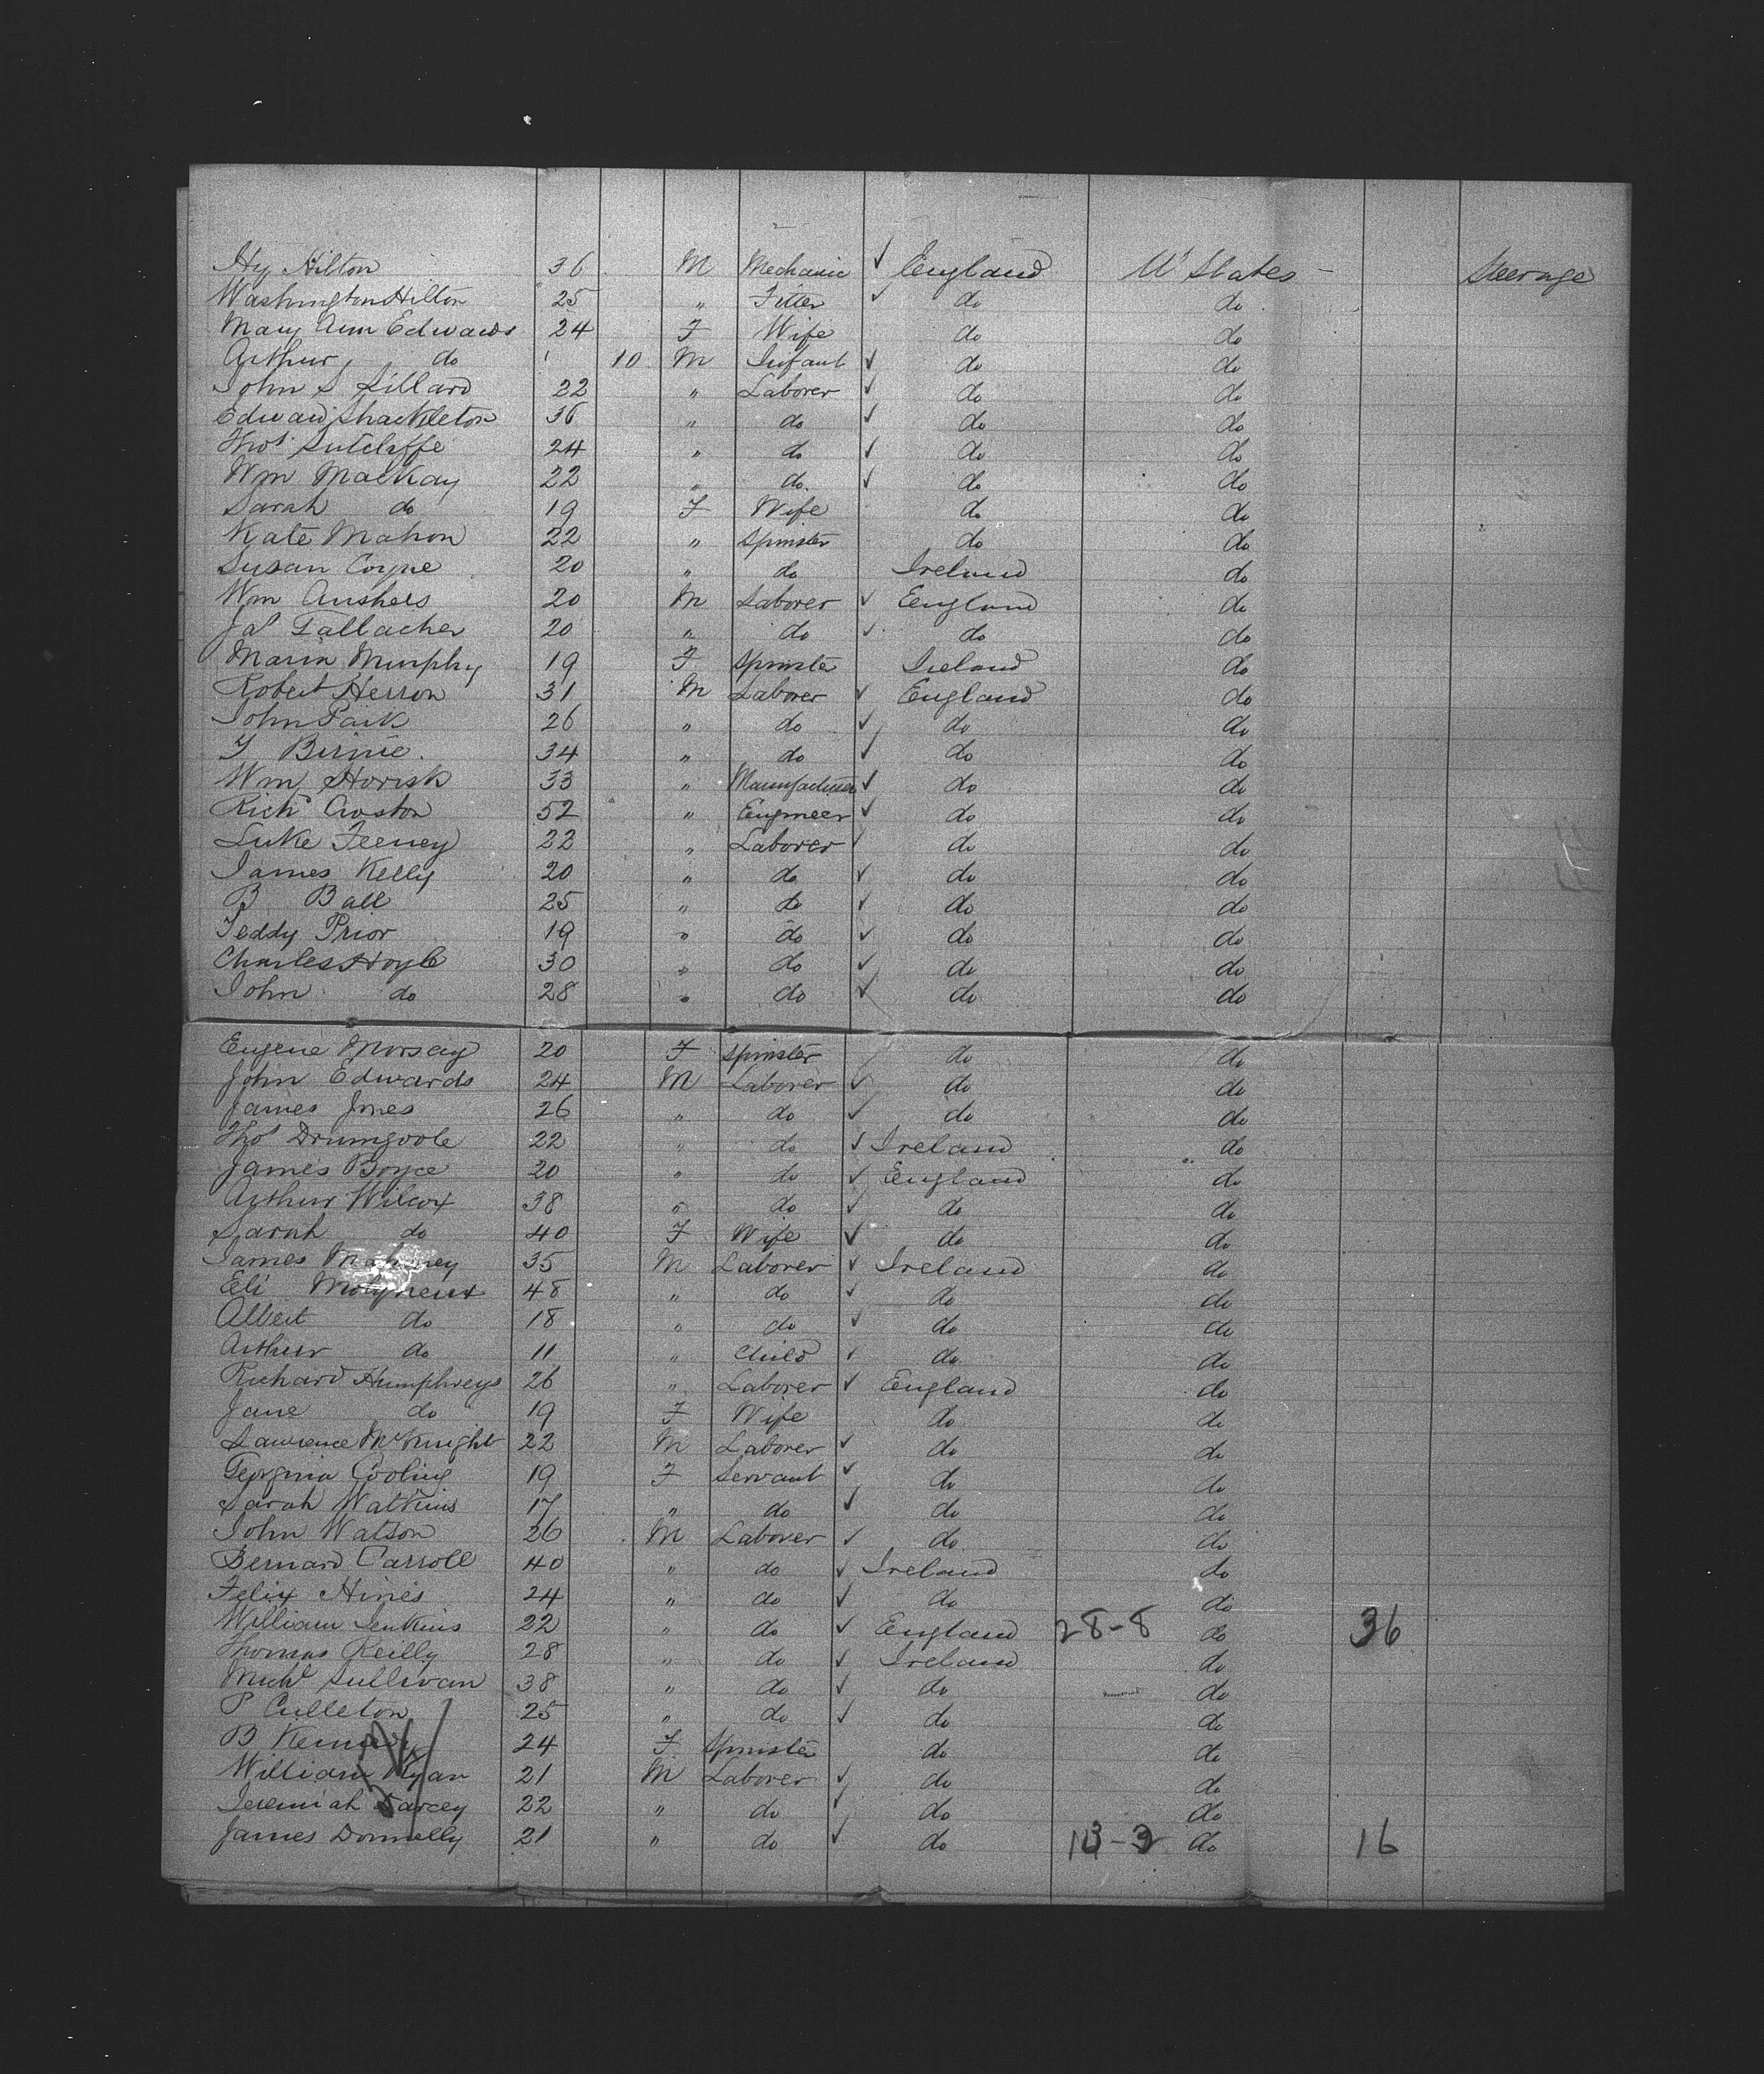 Hy Hilton 36 M Mechanic ✓ England U States - Steerage
Washington Hilton 25 " Fitter ✓ do do
Mary Ann Edwards 24 F Wife do do
Arthur do 10 M Infant ✓ do do
John S Sillard 22 " Laborer ✓ do do
Edward Shackleton 36 " do ✓ do do
Thos Sutcliffe 24 " do ✓ do do
Wm MacKay 22 " do. ✓ do do
Sarah do 19 F Wife do do
Kate Mahon 22 " Spinster do do
Susan Coyne 20 " do Ireland do
Wm Anshels 20 M Laborer ✓ England do
Jas Gallacher 20 " do ✓ do do
Maria Murphy 19 F Spinster Ireland do
Robert Herron 31 M Laborer ✓ England do
John Park 26 " do ✓ do do
Birnie 34 " do ✓ do do
Wm Horisk 33 " Manufacturer ✓ do do
Richd Croston 52 " Engineer ✓ do do
Luke Feeney 22 " Laborer ✓ do do
James Kelly 20 " do ✓ do do
B Ball 25 " do ✓ do do
Teddy Prior 19 " do ✓ do do
Charles Hoyle 30 " do ✓ do do
John do 28 " do ✓ do do
Eugene Morsay 20 F Spinster do do
John Edwards 24 M Laborer ✓ do do
James Jones 26 " do ✓ do do
Thos Drumgoole 22 " do ✓ Ireland do
James Boyce 20 " do ✓ England do
Arthur Wilcox 38 " do ✓ do do
Sarah do 40 F Wife ✓ do do
James Mahoney 35 M Laborer ✓ Ireland do
Eli Molyneux 48 " do ✓ do do
Albert do 18 " do ✓ do do
Arthur do 11 " Child ✓ do do
Richard Humphreys 26 " Laborer ✓ England do
Jane do 19 F Wife do do
Lawrence McKnight 22 M Laborer ✓ do do
Georgina Cooling 19 F Servant ✓ do do
Sarah Watkins 17 " do ✓ do do
John Watson 26 M Laborer ✓ do do
Bernard Carroll 40 " do ✓ Ireland do
Felix Hines 24 " do ✓ do do
William Jenkins 22 " do ✓ England 28-8 do 36
Thomas Reilly 28 " do ✓ Ireland do
Michl Sullivan 38 " do ✓ do do
P Culleton 25 " do ✓ do do
B Kennedy 24 F Spinster do do
William Ryan 21 M Laborer ✓ do do
Jeremiah Darcey 22 " do ✓ do do
James Donnelly 21 " do ✓ do 13-3 do 16